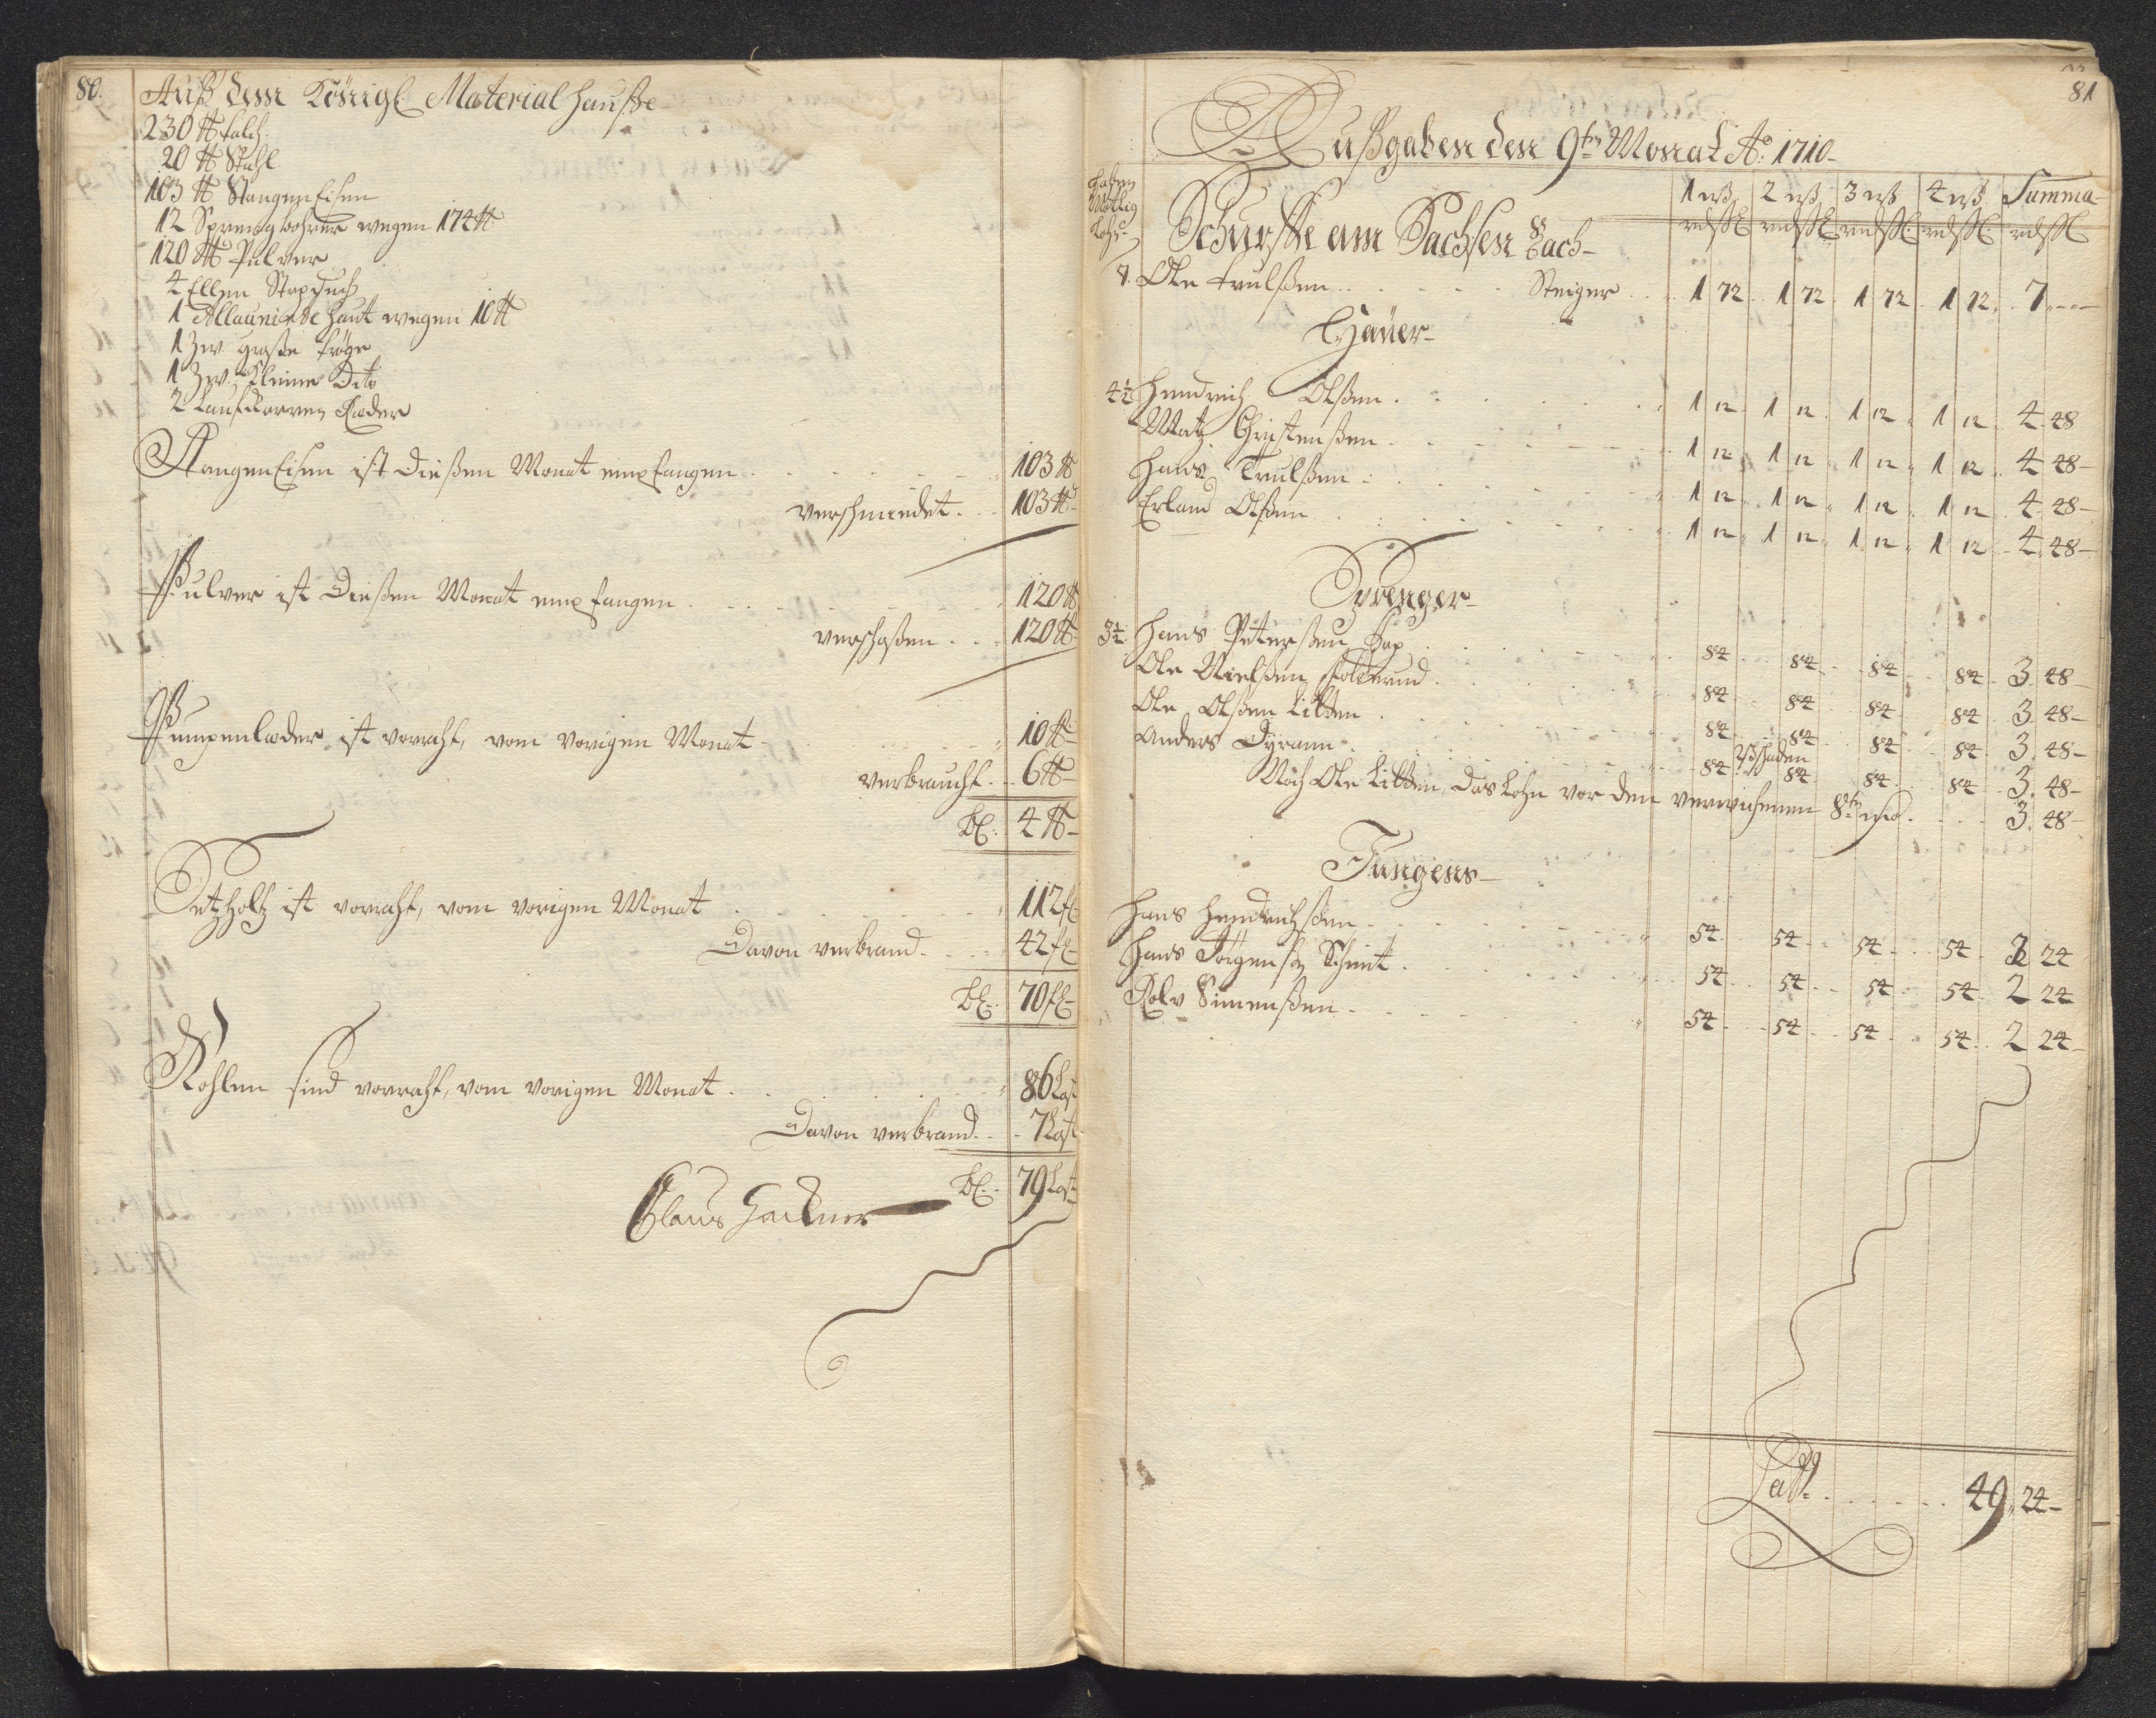 80.
Auß dem Königl. Material hauße
230 ℔ talch.
20 ℔ Stahl
103 ℔ Stangen Eisen
12 Sprengbohrer wegen 174 ℔
120 ℔ Pulver
4 Ellen
1 Allaunirde haut wegen 10 ℔
1 Zw. große tröge
1 Zw. Kleine Dito
2 Laufkarren Räder
Stangen Eisen ist dießen Monat empfangen . . . 103 ℔
verschmiedet . . 103 ℔
Pulver ist dießen Monat empfangen . . . 120 ℔
verschoßen . . . 120 ℔
Pumpenleder ist vorraht, vom vorigen Monat . . . 10 ℔
verbraucht . . 6 ℔
bl: 4 ℔
Setzholtz ist vorraht, vom vorigen Monat . . . 112 fl
Davon verbrand . . . 42 fl
bl: 70 fl
Kohlen sind vorraht, vom vorigen Monat . . . 86 Last
Davon verbrand . . 7 Last
bl: 79 Last
Claus
81
Außgaben den 9ten Monat Ao: 1710
haben
Lohn
1 wß 2 wß 3 wß 4 wß Summa
rdß rdß rdß rdß rdß
Schurffe am Sachsen Bach
7. Ole trulßen . . . Steiger . . 1 72 1 72 1 72 1 72 7 "
Häuer
4½ Hendrich Olßen . . . 1 12 1 12 1 12 1 12 4 48
Matz Christenßen . . . 1 12 1 12 1 12 1 12 4 48
Hans Trulßen . . . 1 12 1 12 1 12 1 12 4 48
Erland Olßen . . . 1 12 1 12 1 12 1 12 4 48
Sprenger
3½ Hans Peterßen . . . 84 84 84 84 3 48
Ole Nielßen . . . 84 84 84 84 3 48
Ole Olßen Litten . . . 84 84 84 84 3 48
Anders . . . 84 84 84 84 3 48
Noch Ole Litten, das Lohn vor den verwichenen 8ten Mo. . . . 3 48
Jungens
Hans Hendrichßen . . . 54 54 54 54 2 24
Hans Jörgenßen Schmit . . . 54 54 54 54 2 24
Rolv Simenßen . . . 54 54 54 54 2 24
Latt: . . . 49 24